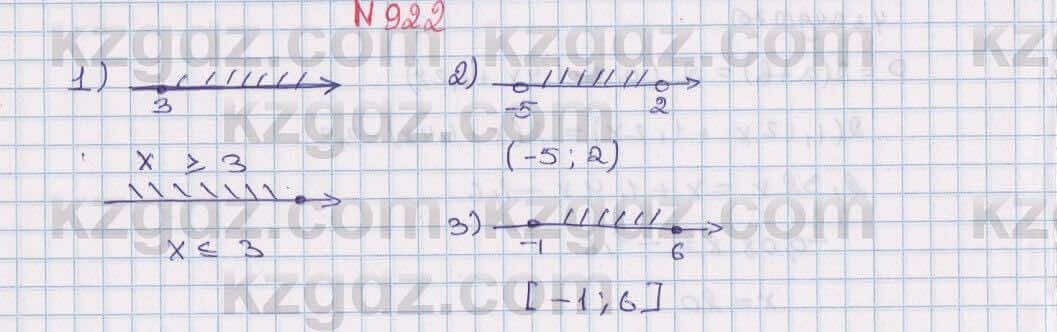 N 922
1)
3
x ≥ 3
x ≤ 3
2)
-5 2
(-5; 2)
3)
-1 6
[-1; 6]
kzgdz.com kzgdz.com kz
kzgdz.com
kzgdz.com kzgdz.com kz
kzgdz.com